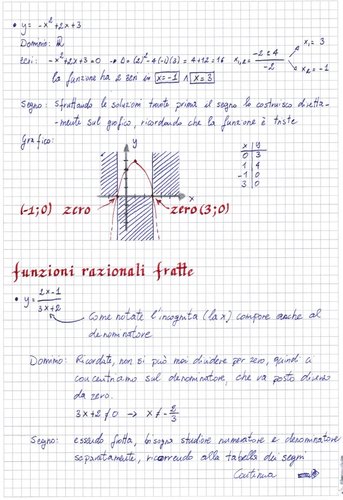 • y = -x²+2x+3
Dominio: ℝ
zeri: -x²+2x+3=0 → Δ=(2)²-4(-1)(3)=4+12=16 x₁,₂= -2±4/-2 x₁=3 x₂=-1
la funzione ha 2 zeri in x=-1 ∧ x=3
Segno: sfruttando le soluzioni trovate prima il segno lo costruisco diretta-
-mente sul grafico, ricordando che la funzione è triste
Grafico:
y
x
x y
0 3
1 4
-1 0
3 0
(-1;0) zero
zero (3;0)
funzioni razionali fratte
• y = 2x-1/3x+2
Come notate l'incognita (la x) compare anche al
denominatore
Dominio: Ricordate, non si può mai dividere per zero, quindi ci
concentriamo sul denominatore, che va posto diverso
da zero.
3x+2≠0 → x≠-2/3
Segno: essendo fratta, bisogna studiare numeratore e denominatore
separatamente, ricorrendo alla tabella dei segni
Continua